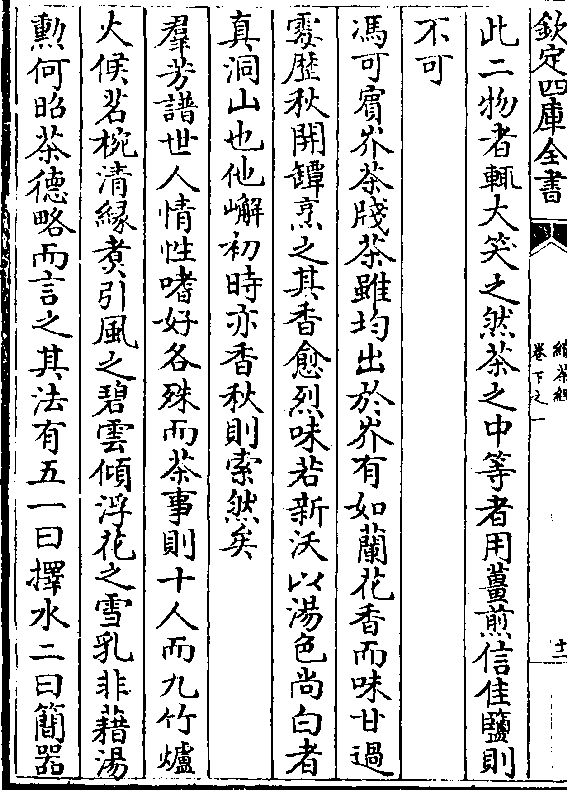 欽定四庫全書
續茶經
卷下之一
十二
此二物者輒大笑之然茶之中等者用薑煎信佳鹽則
不可
馮可賓岕茶牋茶雖均出於岕有如蘭花香而味甘過
霉歴秋開罈烹之其香愈烈味若新沃以湯色尚白者
真洞山也他嶰初時亦香秋則索然矣
羣芳譜世人情性嗜好各殊而茶事則十人而九竹爐
火候茗椀清緣煮引風之碧雲傾浮花之雪乳非藉湯
勲何昭茶德略而言之其法有五一曰擇水二曰簡器